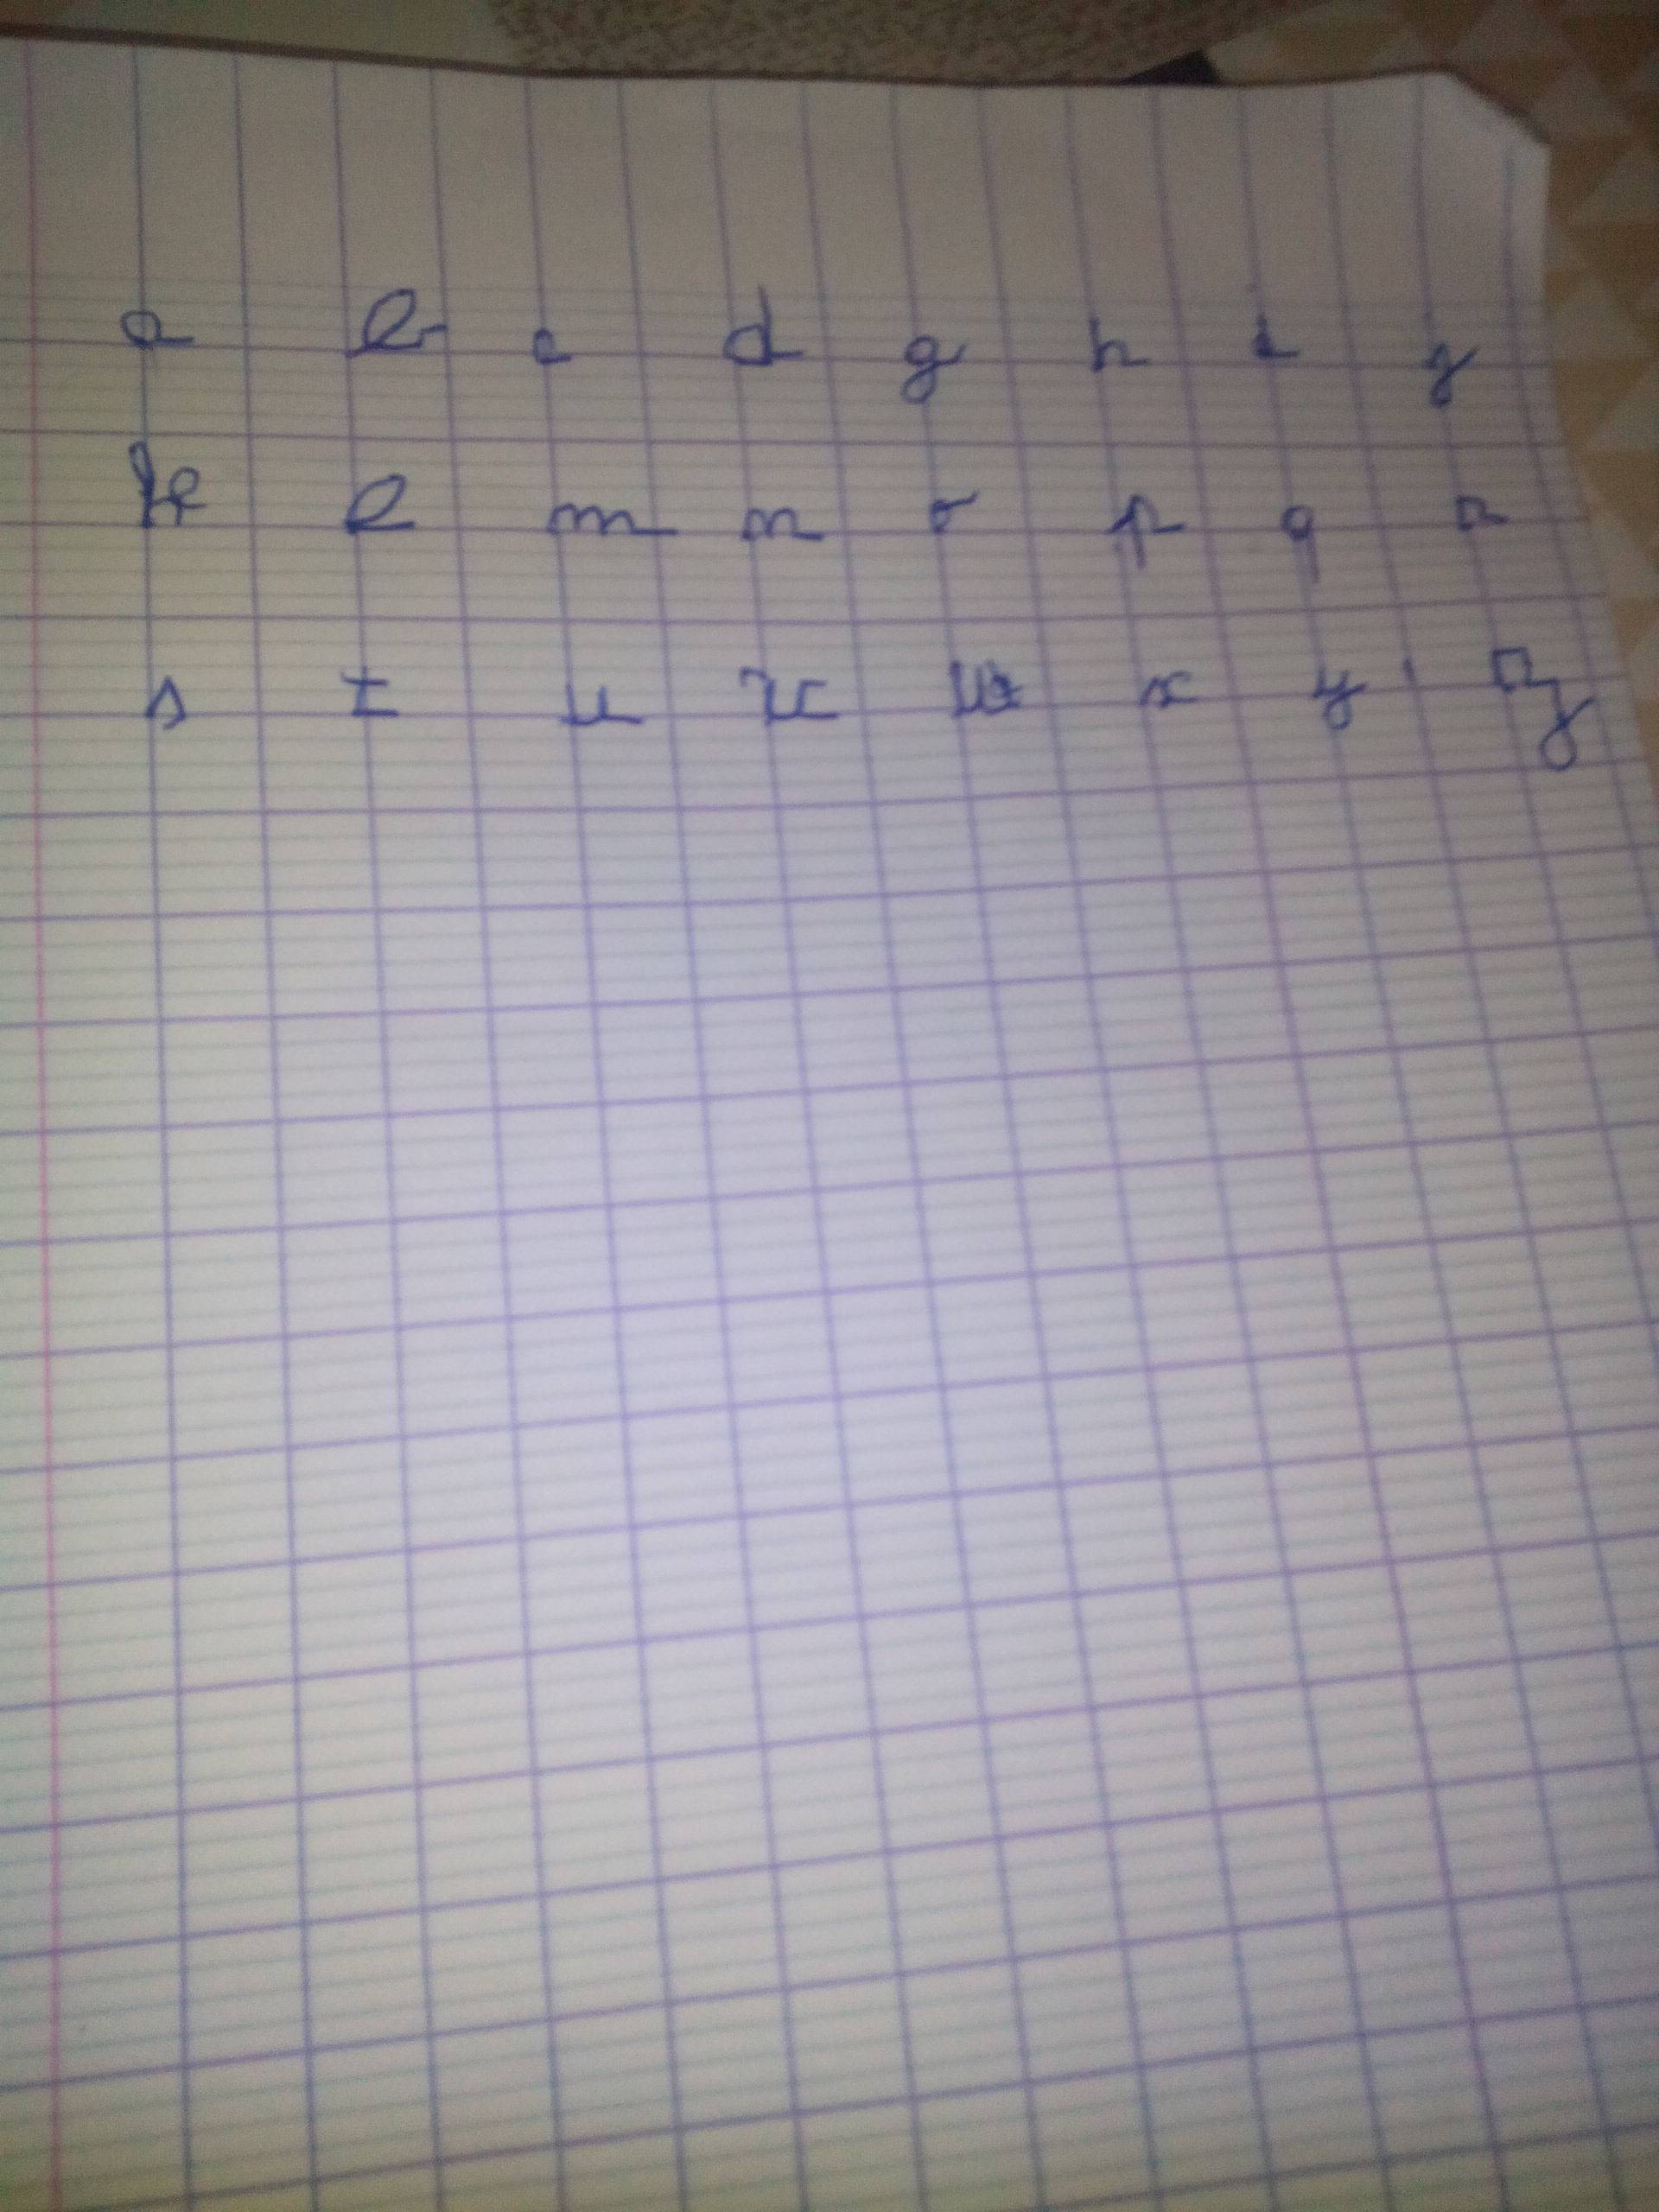 a b c d g h i j
k l m n o p q r
s t u v w x y z